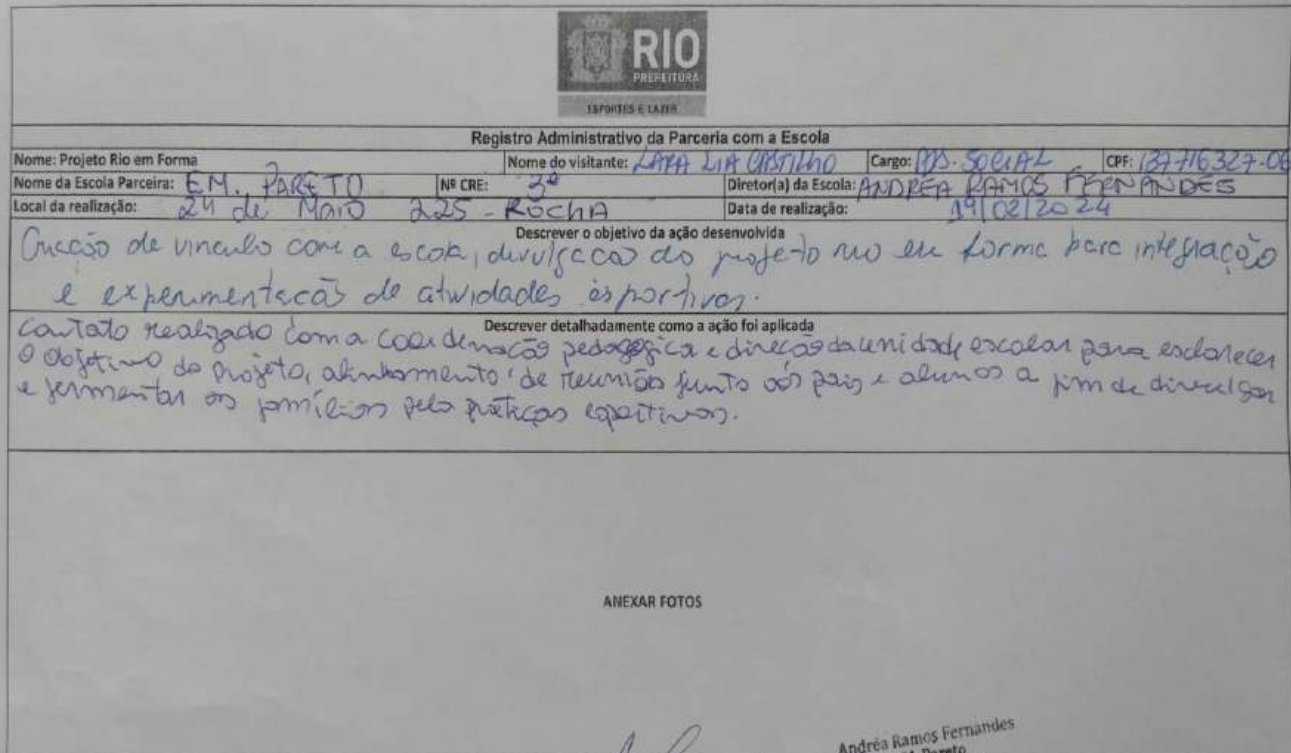 RIO
PREFEITURA
ESPORTES E LAZER
Registro Administrativo da Parceria com a Escola
Nome: Projeto Rio em Forma Nome do visitante: LARA LIA CASTILHO Cargo: ASS. SOCIAL CPF: 137716327-06
Nome da Escola Parceira: E.M. PARETO Nº CRE: 3ª Diretor(a) da Escola: ANDREA RAMOS FERNANDES
Local da realização: 24 de Maio 225 - ROCHA Data de realização: 19/02/2024
Descrever o objetivo da ação desenvolvida
Criação de vinculo com a escola, divulgacao do projeto rio em forma para integração
e experimentacão de atividades esportivas.
Descrever detalhadamente como a ação foi aplicada
Contato realizado com a coordenação pedagógica e direção da unidade escolar para esclarecer
o objetivo do projeto, alinhamento de reunião junto aos pais e alunos a fim de divulgar
e fermentar as famílias pelo práticas esportivas.
ANEXAR FOTOS
Andréa Ramos Fernandes
Pareto